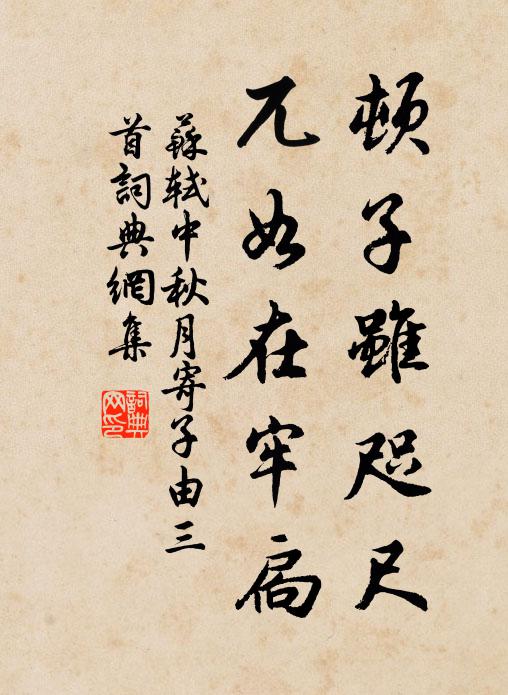 頓子雖咫尺
兀如在牢扃
蘇軾中秋月寄子由三
首詞典網集
詞典
网印